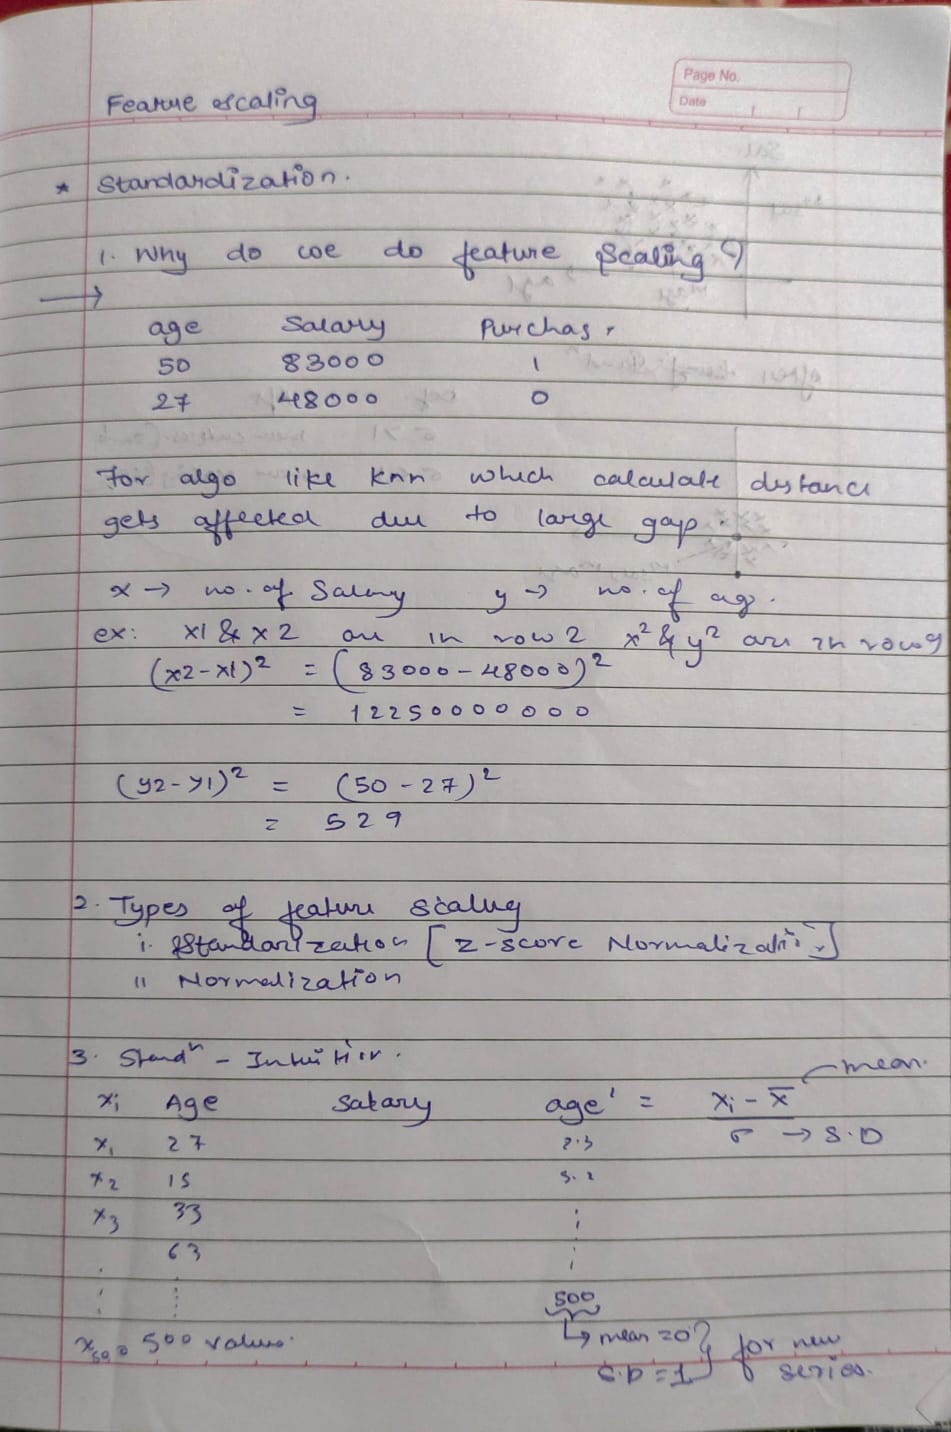 Page No.
Date
Feature scaling
* Standardization.
1. Why do we do feature scaling?
→
age Salary Purchas.
50 83000 1
27 48000 0
For algo like knn which calculate distance
gets affected due to large gap.
x → no. of Salary y → no. of ag.
ex: x1 & x2 are in row 2 x² & y² are in row 9
(x2-x1)² = (83000-48000)²
= 12250000000
(y2-y1)² = (50-27)²
= 529
2. Types of feature scaling
i. Standarization [Z-score Normalizati.]
ii Normalization
3. Standⁿ - Intuition.
mean.
xi Age Salary age' = xi - x̄
σ → S.D
x1 27 2.3
x2 15 3.2
x3 33
63
500
x500 500 values. ↳ mean = 0 } for new
S.D = 1 } series.